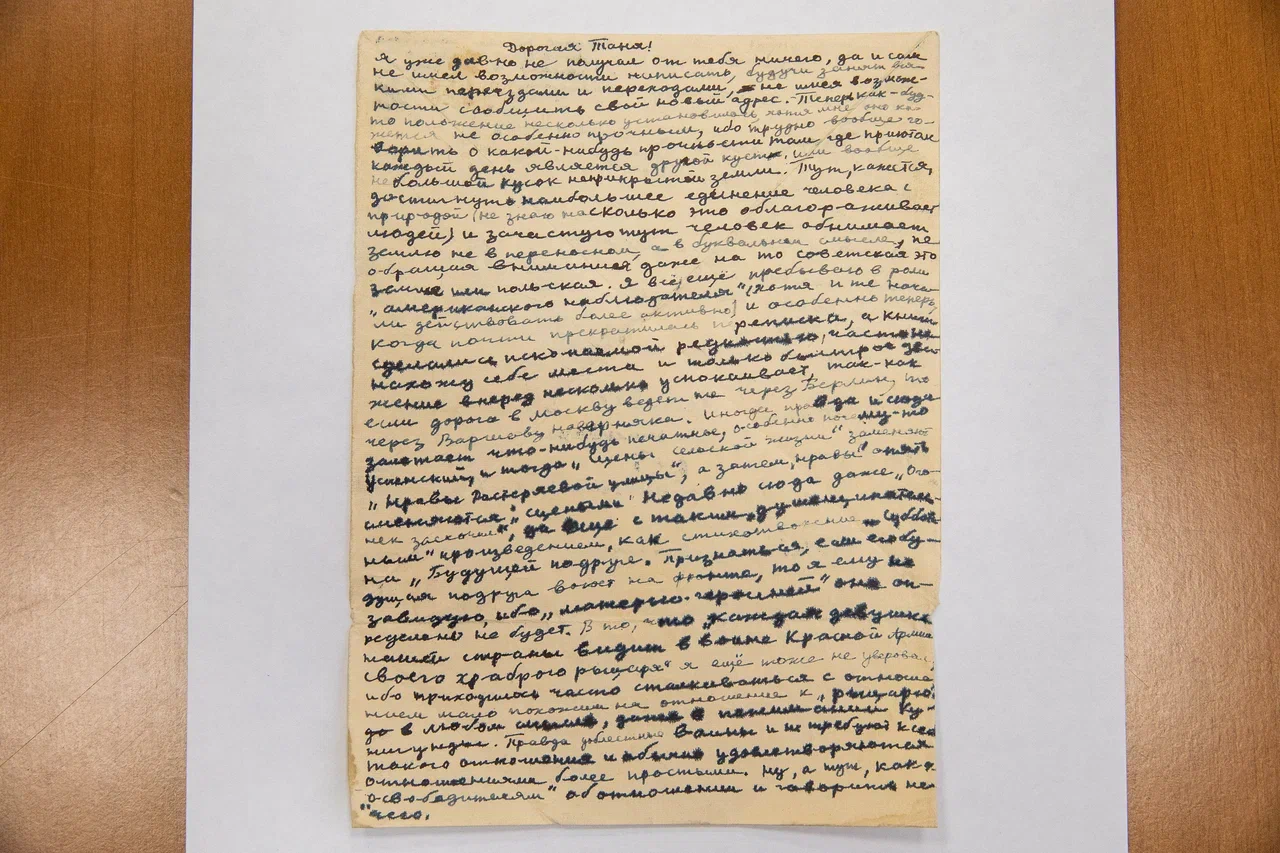 Дорогая Таня!
Я уже давно не получал от тебя ничего, да и сам
не имел возможности написать, будучи занят вся-
кими переездами и переходами, не имея возмож-
ности сообщить свой новый адрес. Теперь как-буд-
то положение несколько установилось хотя мне оно ка-
жется не особенно прочным, ибо трудно вообще го-
ворить о какой-нибудь прочности там где приютом
каждый день является другой куст, или вообще
небольшой кусок неприкрытой земли. Тут, кажется,
достигнуто наибольшее единение человека с
природой (не знаю насколько это облагораживает
людей) и зачастую тут человек обнимает
землю не в переносном, а в буквальном смысле, не
обращая внимания даже на то советская это
земля или польская. Я всё ещё пребываю в роли
„американского наблюдателя" (хотя и те нача-
ли действовать более активно) и особенно теперь,
когда почти прекратилась переписка, а книги
сделались ископаемой редкостью, часто не
нахожу себе места и только быстрое дви-
жение вперед несколько успокаивает, так-как
если дорога в Москву ведет не через Берлин, то
через Варшаву наверняка. Иногда правда и сюда
залетает что-нибудь печатное, особенно почему-то
Успенский, и тогда „сцены сельской жизни" заменяют
„Нравы Растеряевой улицы", а затем „нравы" опять
сменяются „сценами". Недавно сюда даже „Ого-
нек заскочил", да ещё с таким „душещипатель-
ным" произведением, как стихотворение
на „Будущей подруге". Признаться, если его бу-
дущая подруга воюет на фронте, то я ему не
завидую, ибо „матерью-героиней" она оп-
ределенно не будет. В то, что „каждая девушка
нашей страны видит в воине Красной Армии
своего храброго рыцаря" я ещё тоже не уверовал,
ибо приходилось часто сталкиваться с отноше-
нием мало похожим на отношение к „рыцарю"
да в любом смысле, даже в
Правда доблестные воины и не требуют к себе
такого отношения и обычно удовлетворяются
отношениями более простыми. Ну, а тут, как к
„освободителям" об отношении и говорить не-
чего.